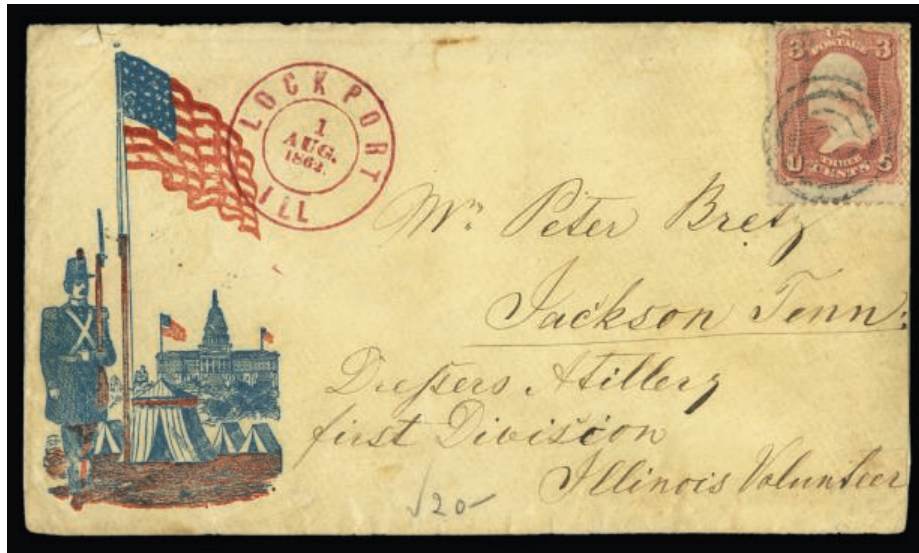 LOCKPORT
1
AUG.
1862.
ILL
U.S.
POSTAGE
3 3
U THREE S
CENTS
Mr. Peter Bretz
Jackson Tenn.
Dreſsers Atillery
first Division
Illinois Volunteer
√20-